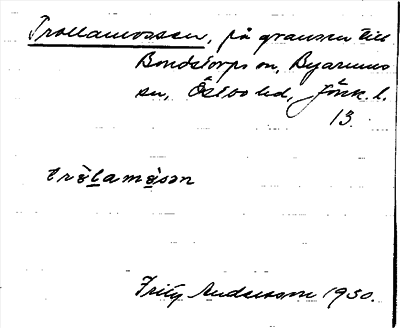 Trollamossen, på gränsen till
Bondstorps sn, Byarums
sn, Östbo hd, Jönk. l.
13.
tròlamòsən
Fritz Andersson 1930.